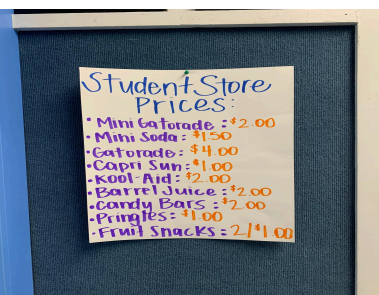 Student Store
Prices:
• Mini Gatorade: $2.00
• Mini Soda: $1.50
• Gatorade: $4.00
• Capri Sun: $1.00
• Kool-Aid: $2.00
• Barrel Juice: $2.00
• Candy Bars: $2.00
• Pringles: $1.00
• Fruit Snacks: 2/$1.00